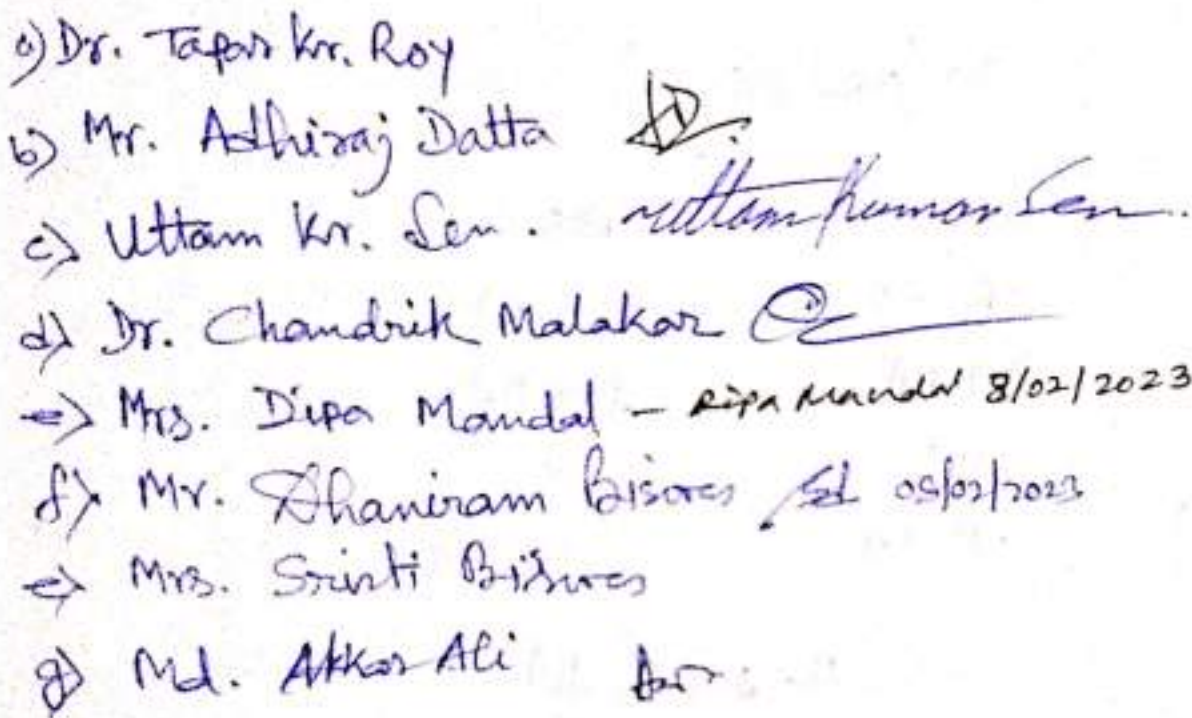 a) Dr. Tapas Kr. Roy
b) Mr. Adhiraj Datta AD.
c) Uttam Kr. Sen. Uttam Kumar Sen.
d) Dr. Chandrik Malakar
e) Mrs. Dipa Mandal - Dipa Mandal 8/02/2023
f) Mr. Dhaniram Biswas Sd 08/02/2023
e) Mrs. Sristi Biswas
g) Md. Akkas Ali